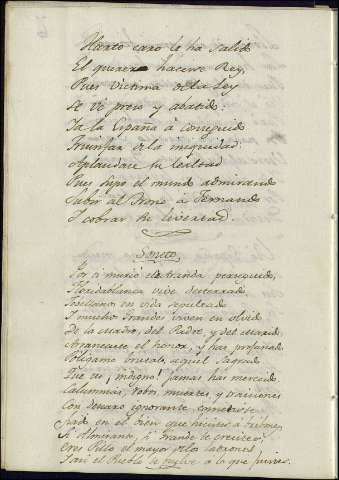 Harto caro le ha salido
El querer hacerse Rey,
Pues victima de la Ley
Se vé preso y abatido:
Ya la España á conseguido
Triunfar de la iniquidad:
Aplaudase tu lealtad
Pues hizo el mundo admirando
Subir al Trono á Fernando
Y cobrar tu livertad.
Soneto
Por ti murió Aranda perseguido,
Floridablanca vive desterrado
Jovellanos en vida sepultado
Y muchos Grandes viven en olvido
De la Madre, del Padre, y del Marido
Arrancaste el honor, y has profanado
Poligamo brutal, aquel sagrado
Que no ¡indigno! jamas has merecido
Calumnias, robos, muertes y traiciones
Con descaro ignorante cometiste
en el bien que hiciste á
Si Almirante, ó Grande te creiste
Eres solo el mayor de los ladrones
Y asi el Pueblo te vuelve a lo que fuiste.